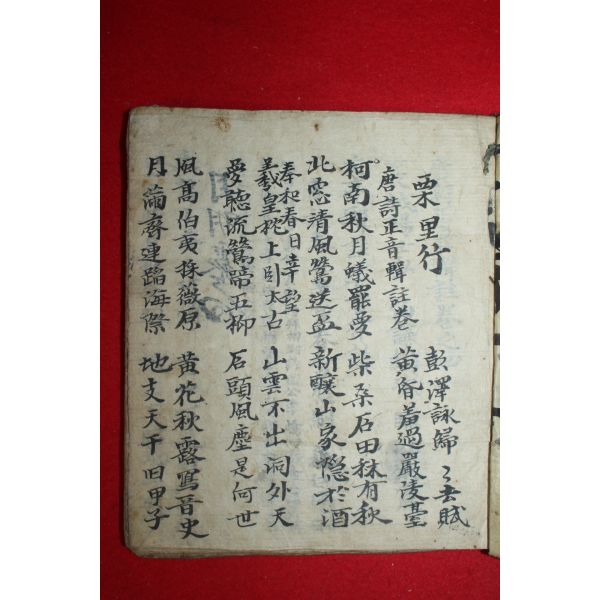 栗里行
彭澤詠歸〻去賦
唐詩正音輯註卷
黃昏羞過嚴陵臺
柯南秋月蟻罷夢 柴桑石田秫有秋
北窓清風鶯送盃 新釀山家隱於酒
奉和春日幸望
羲皇枕上卧太古 山雲不出洞外天
愛聽流鶯蹄五柳 石頭風塵是何世
風高伯夷採薇原 黃花秋露寫晉史
月 齊連蹈海際 地支天干旧甲子